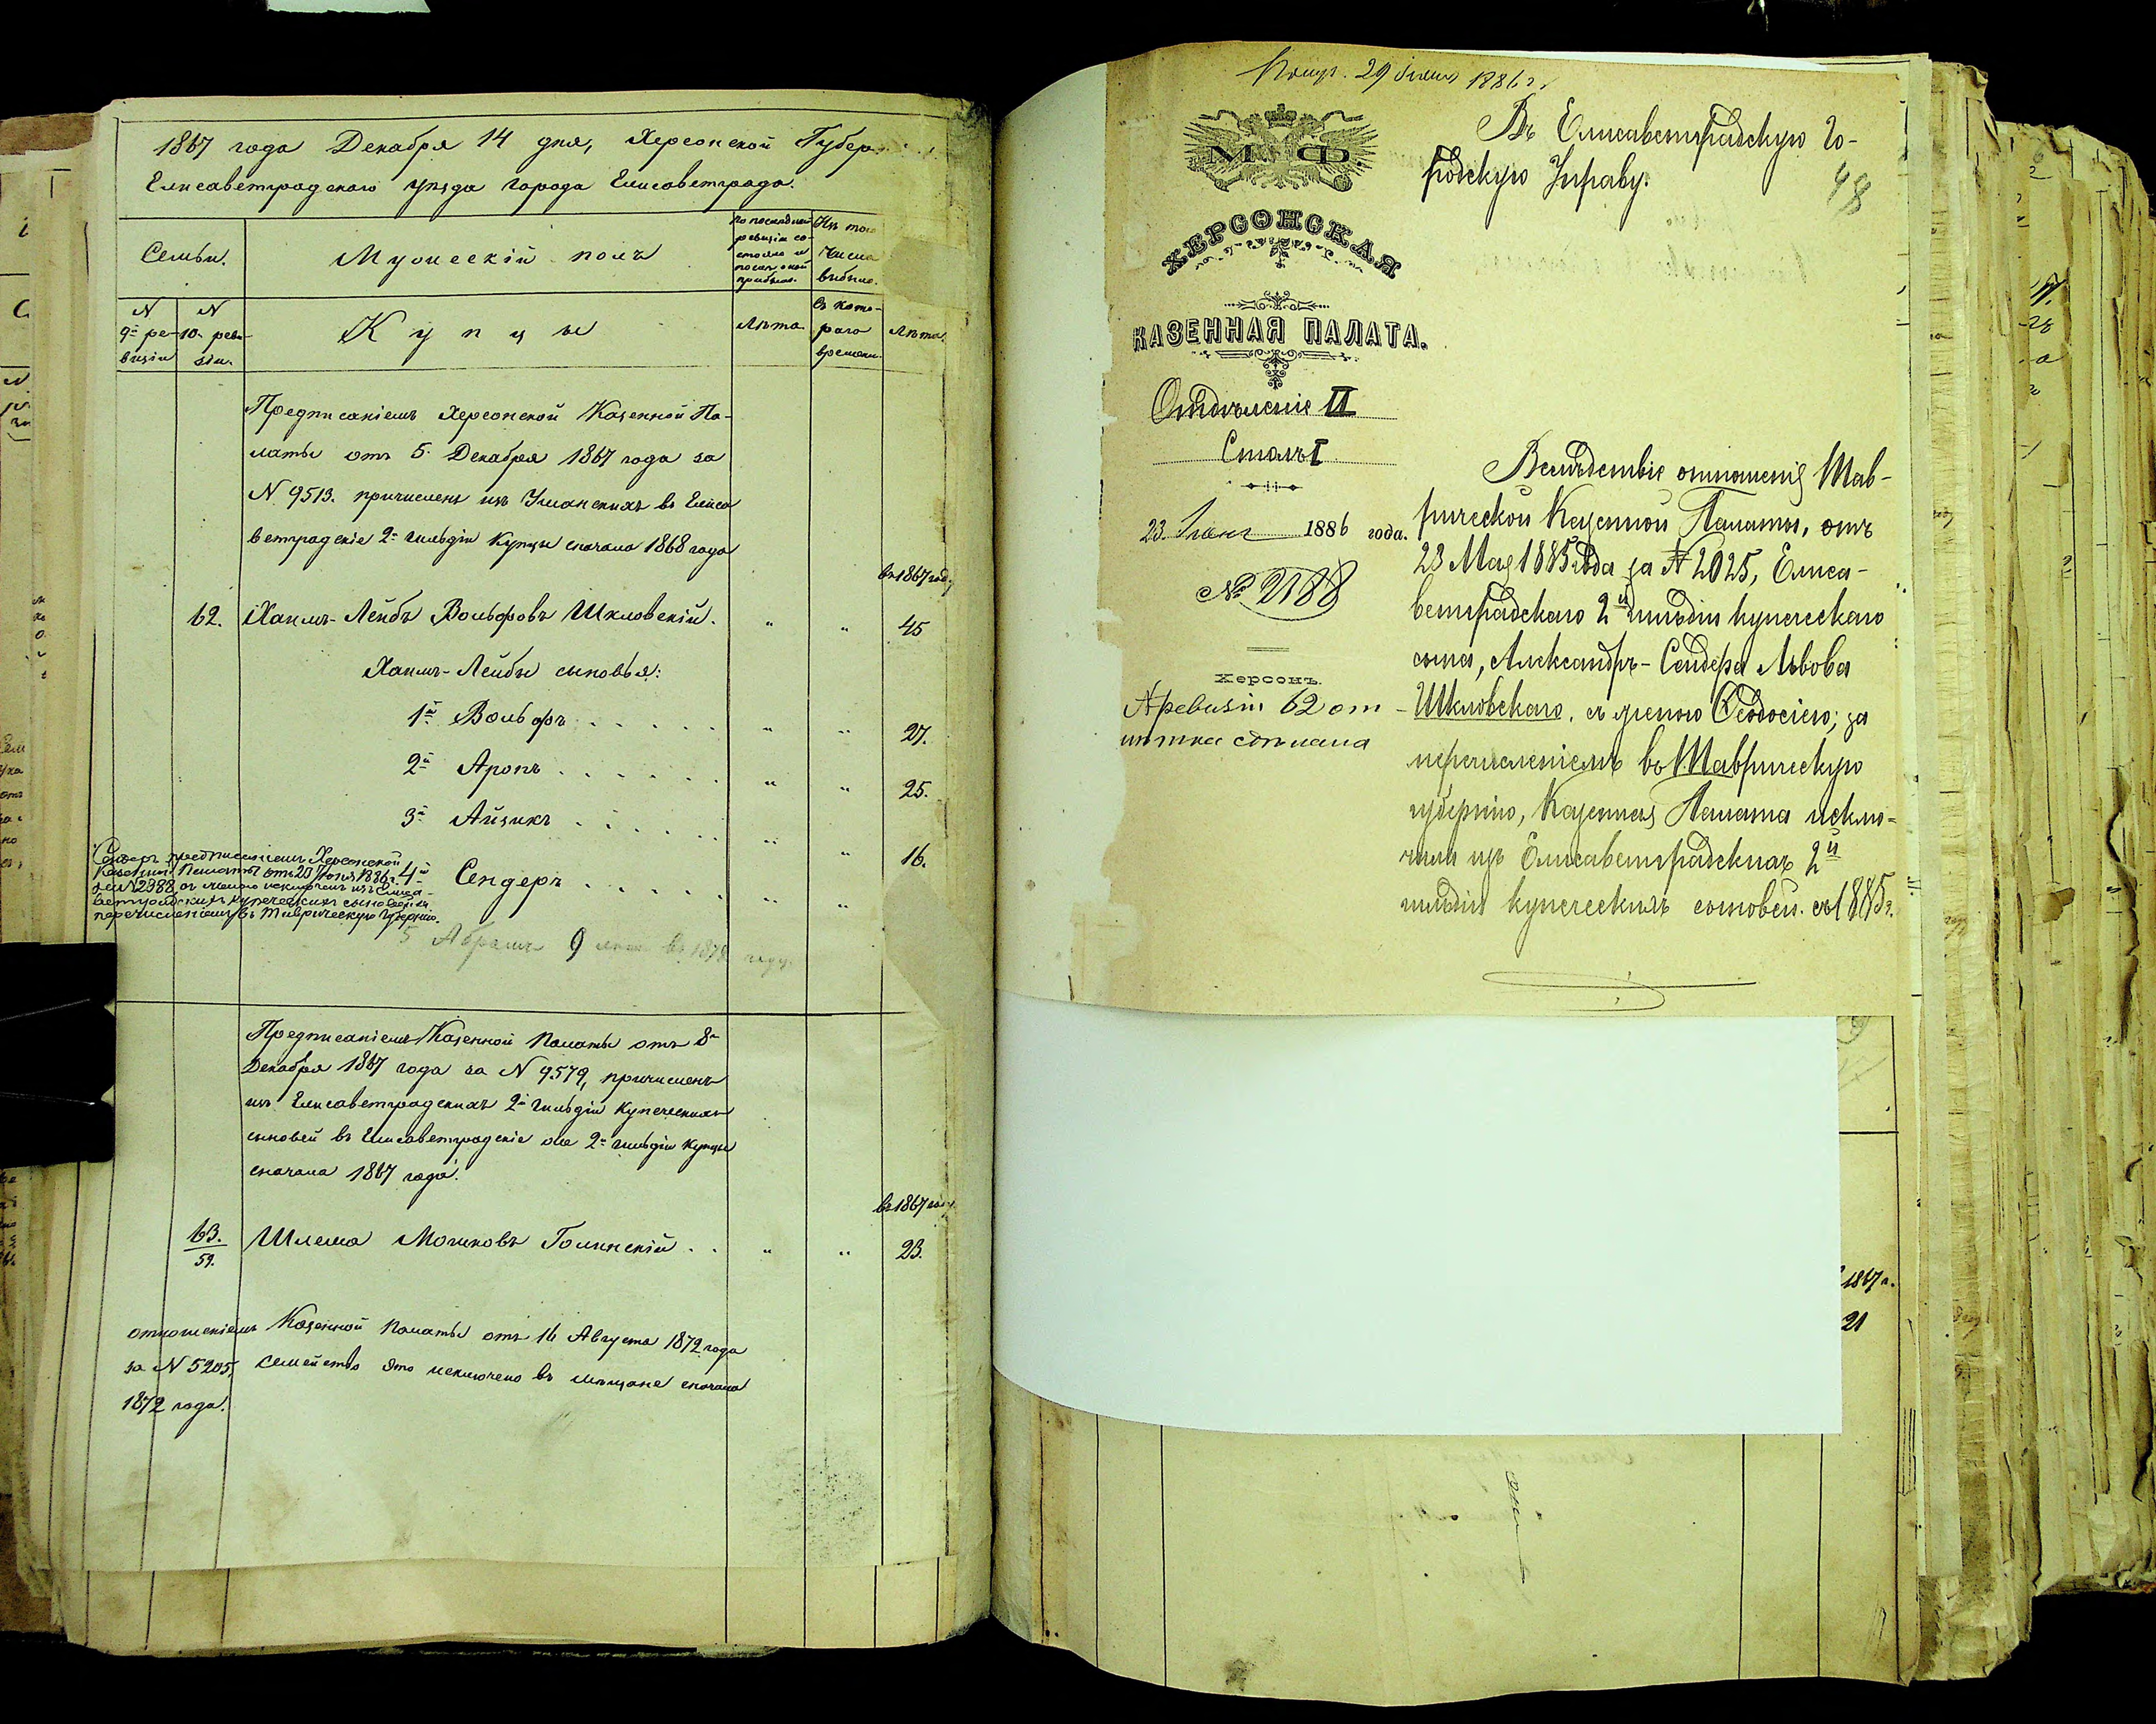 1867 года Декабря 14 дня, Херсонской Губер.
Елисаветградскаго уѣзда города Елисаветграда.
Семьи.
Мужескій полъ
По последней
ревизіи со-
стояло и
после оной
прибыло.
Изъ того
числа
выбыло.
N
9й ре-
визіи
N
10. реви-
зіи.
Купцы
Лѣта
съ кото-
раго
времени
Лѣта.
Предписаніемъ Херсонской Казенной Па-
латы отъ 5 Декабря 1867 года за
N 9513. причисленъ изъ Уманскихъ въ Елиса
ветградскіе 2й гильдіи Купцы сначала 1868 года
въ 1867 году
62. Хаимъ-Лейбъ Вольфовъ Шкловскій. " " 45
Хаимъ-Лейбы сыновья:
1й Вольфъ . . . . . " " 27.
2й Аронъ . . . . . . " " 25.
3й Айзикъ . . . . . . " " 16.
4й Сендеръ . . . . . . " "
Сендеръ предписаніемъ Херсонской
Казенной Палаты отъ 23 Іюня 1886 г.
за N 2388, съ женою исключенъ изъ Елиса-
ветградскихъ купеческихъ сыновей за
перечисленіемъ въ Таврическую Губернію.
5 Абрамъ 9 лѣтъ въ 1878 году.
Предписаніемъ Казенной Палаты отъ 8
Декабря 1867 года за N 9579, причисленъ
изъ Елисаветградскихъ 2й гильдіи Купеческихъ
сыновей въ Елисаветградскіе же 2й гильдіи Купцы
сначала 1867 года.
въ 1867 году
63.
59.
Шлема Мошковъ Голинскій . . " " 23.
отношеніемъ Казенной Палаты отъ 16 Августа 1872 года
за N 5205, семейство это исключено въ мѣщане сначала
1872 года.
Получ. 29 Іюня 1886 г.
М Ф.
ХЕРСОНСКАЯ
КАЗЕННАЯ ПАЛАТА.
Отдѣленіе II
Столъ I
23. Іюня 1886 года.
№ 2188
Херсонъ.
А ревизіи 62 от-
мѣтка сдѣлана
Въ Елисаветградскую Го-
родскую Управу.
48
Вслѣдствіе отношенія Тав-
рической Казенной Палаты, отъ
23 Мая 1885 года за № 2025, Елиса-
ветградскаго 2й гильдіи купеческаго
сына, Александръ-Сендера Львова
Шкловскаго, съ женою Ѳеодосіею, за
перечисленіемъ въ Таврическую
губернію, Казенная Палата исклю-
чила изъ Елисаветградскихъ 2й
гильдіи купеческихъ сыновей съ 1885 г.
1867 г.
21